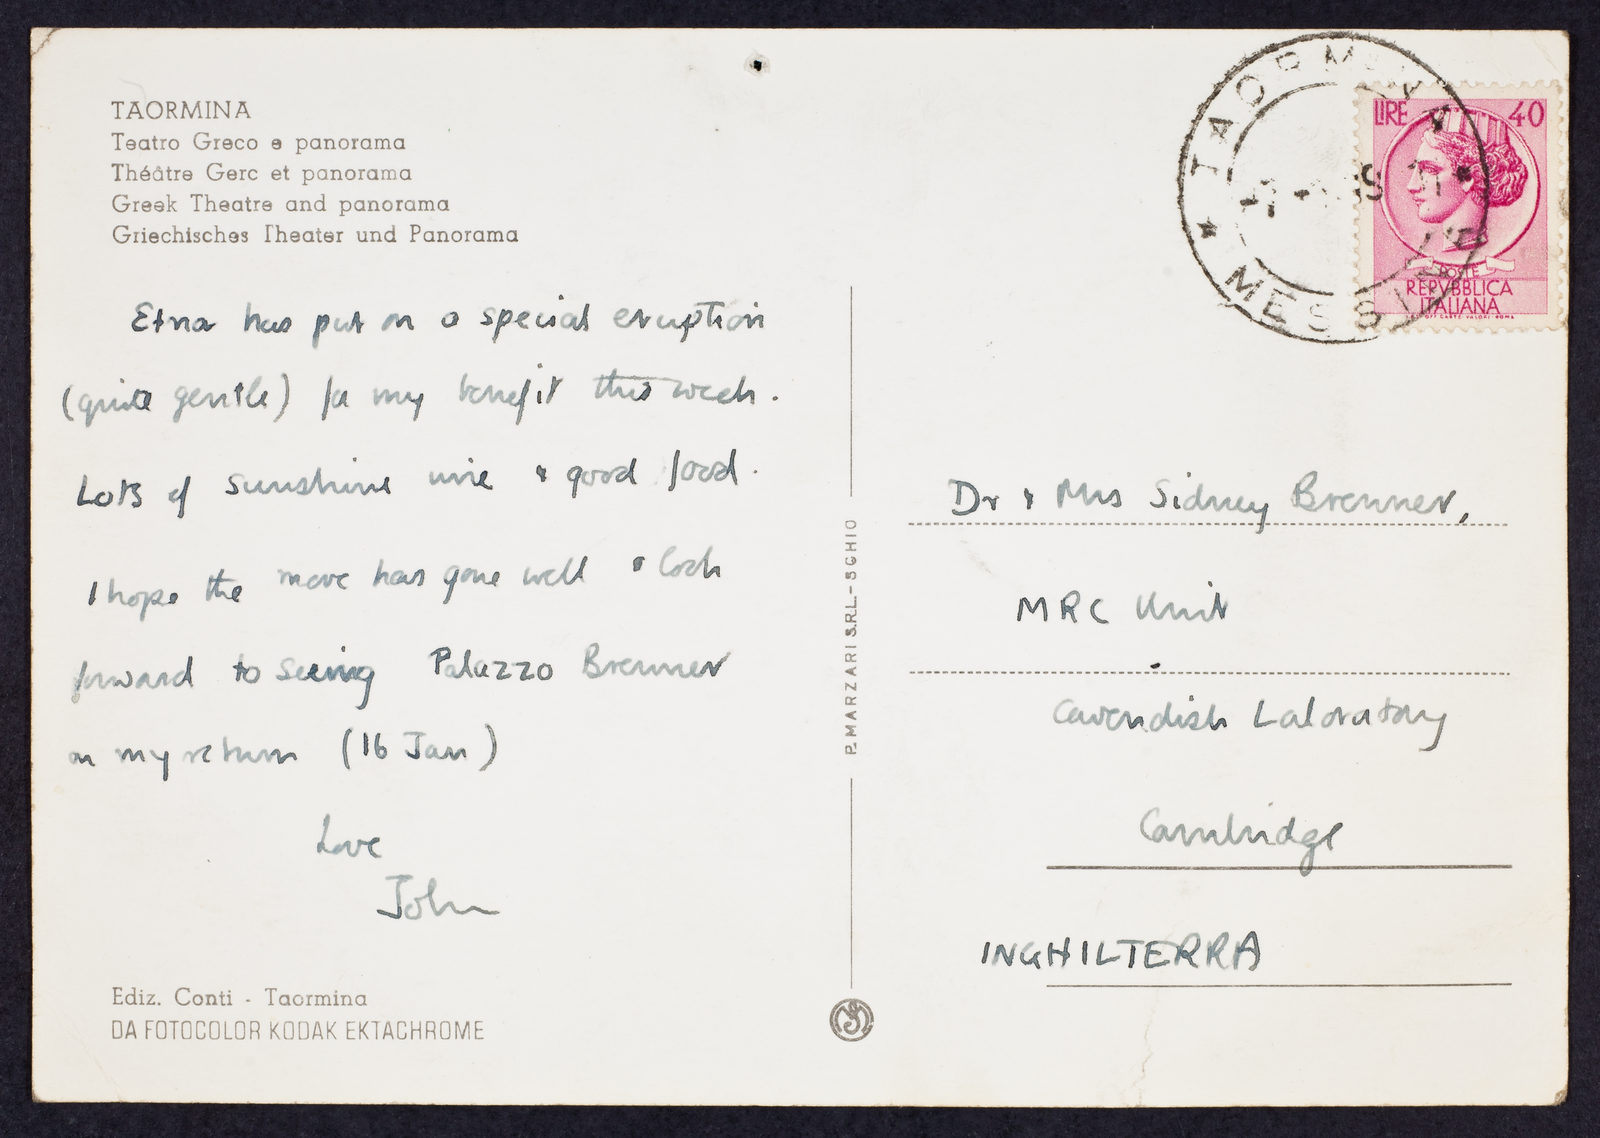 TAORMINA
Teatro Greco e panorama
Théâtre Gerc et panorama
Greek Theatre and panorama
Griechisches Theater und Panorama
Etna has put on a special eruption
(quite gentle) for my benefit this week.
Lots of sunshine wine & good food.
I hope the move has gone well & look
forward to seeing Palazzo Brenner
on my return (16 Jan)
Love
John
Ediz. Conti - Taormina
DA FOTOCOLOR KODAK EKTACHROME
P. MARZARI S.R.L. - SCHIO
TAORMINA
MESSI
LIRE 40
POSTE
REPVBBLICA
ITALIANA
Dr & Mrs Sidney Brenner,
MRC Unit
Cavendish Laboratory
Cambridge
INGHILTERRA